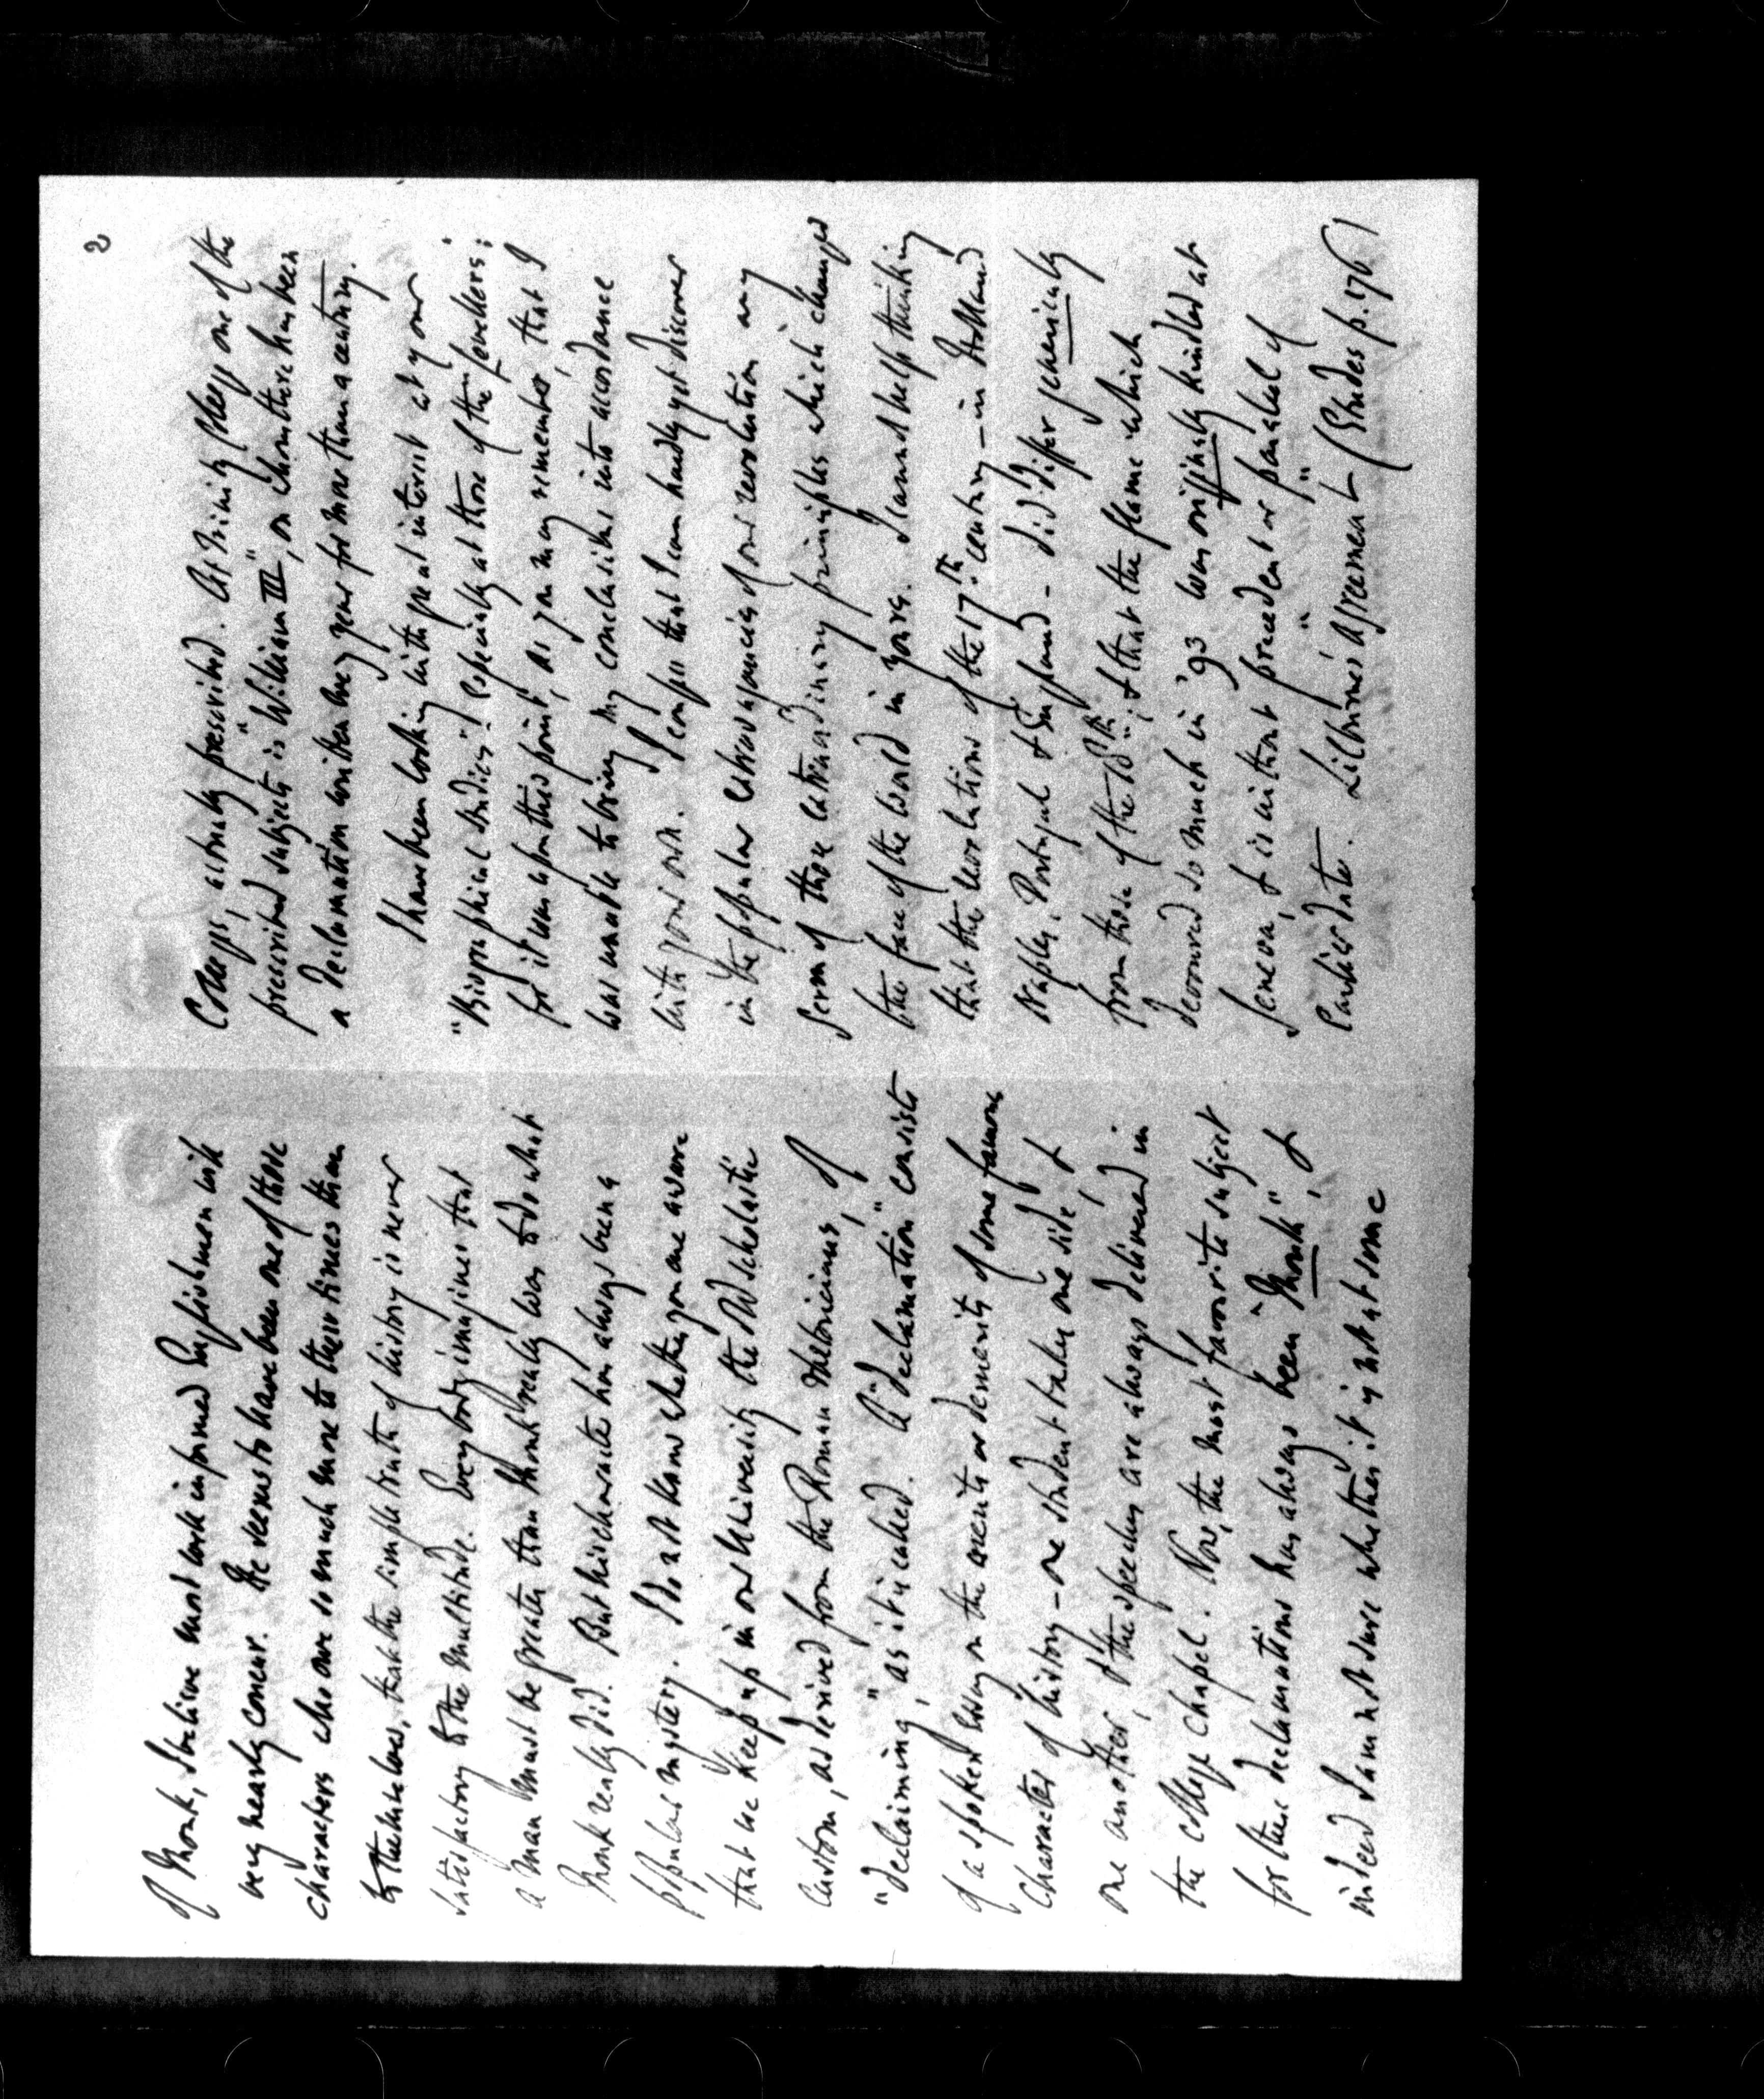 of Monk, I believe most well informed Englishmen will
very nearly concur. He seems to have been one of those
characters who owe so much more to their times than
to themselves, that the simple truth of history is never
satisfactory to the multitude. Everybody imagines that
a man must be greater than Monk really was to do what
Monk really did. But his character has always been a
popular mystery. I do not know whether you are aware
that we keep up in our University the old scholastic
custom, as derived from the Roman rhetoricians, of
"declaiming", as it is called. A "declamation" consists
of a spoken essay on the merits or demerits of some famous
character of history – one student takes one side, &
one another, & the speeches are always delivered in
the college chapel. Now, the most favorite subject
for these declamations has always been "Monk", &
indeed I am not sure whether it is not at some
2
Colleges, actually prescribed. At Trinity College one of the
prescribed subjects is "William III", on whom there has been
a declamation written every year for more than a century.
I have been looking with great interest at your
"Biographical Studies", especially at those of the Levellers;
for it was upon this point, as you may remember, that I
was unable to bring my conclusions into accordance
with your own. I confess that I can hardly yet discover
in the popular extravagancies of our revolution any
germ of those extraordinary principles which changed
the face of the world in yours. I cannot help thinking
that the revolutions of the 17th. century – in Holland
Naples, Portugal & England – did differ generically
from those of the 18th.; & that the flame which
devoured so much in '93 was originally kindled at
Geneva, & is without precedent or parallel of
earlier date. Lilburne's "agreement" (Etudes p. 176)